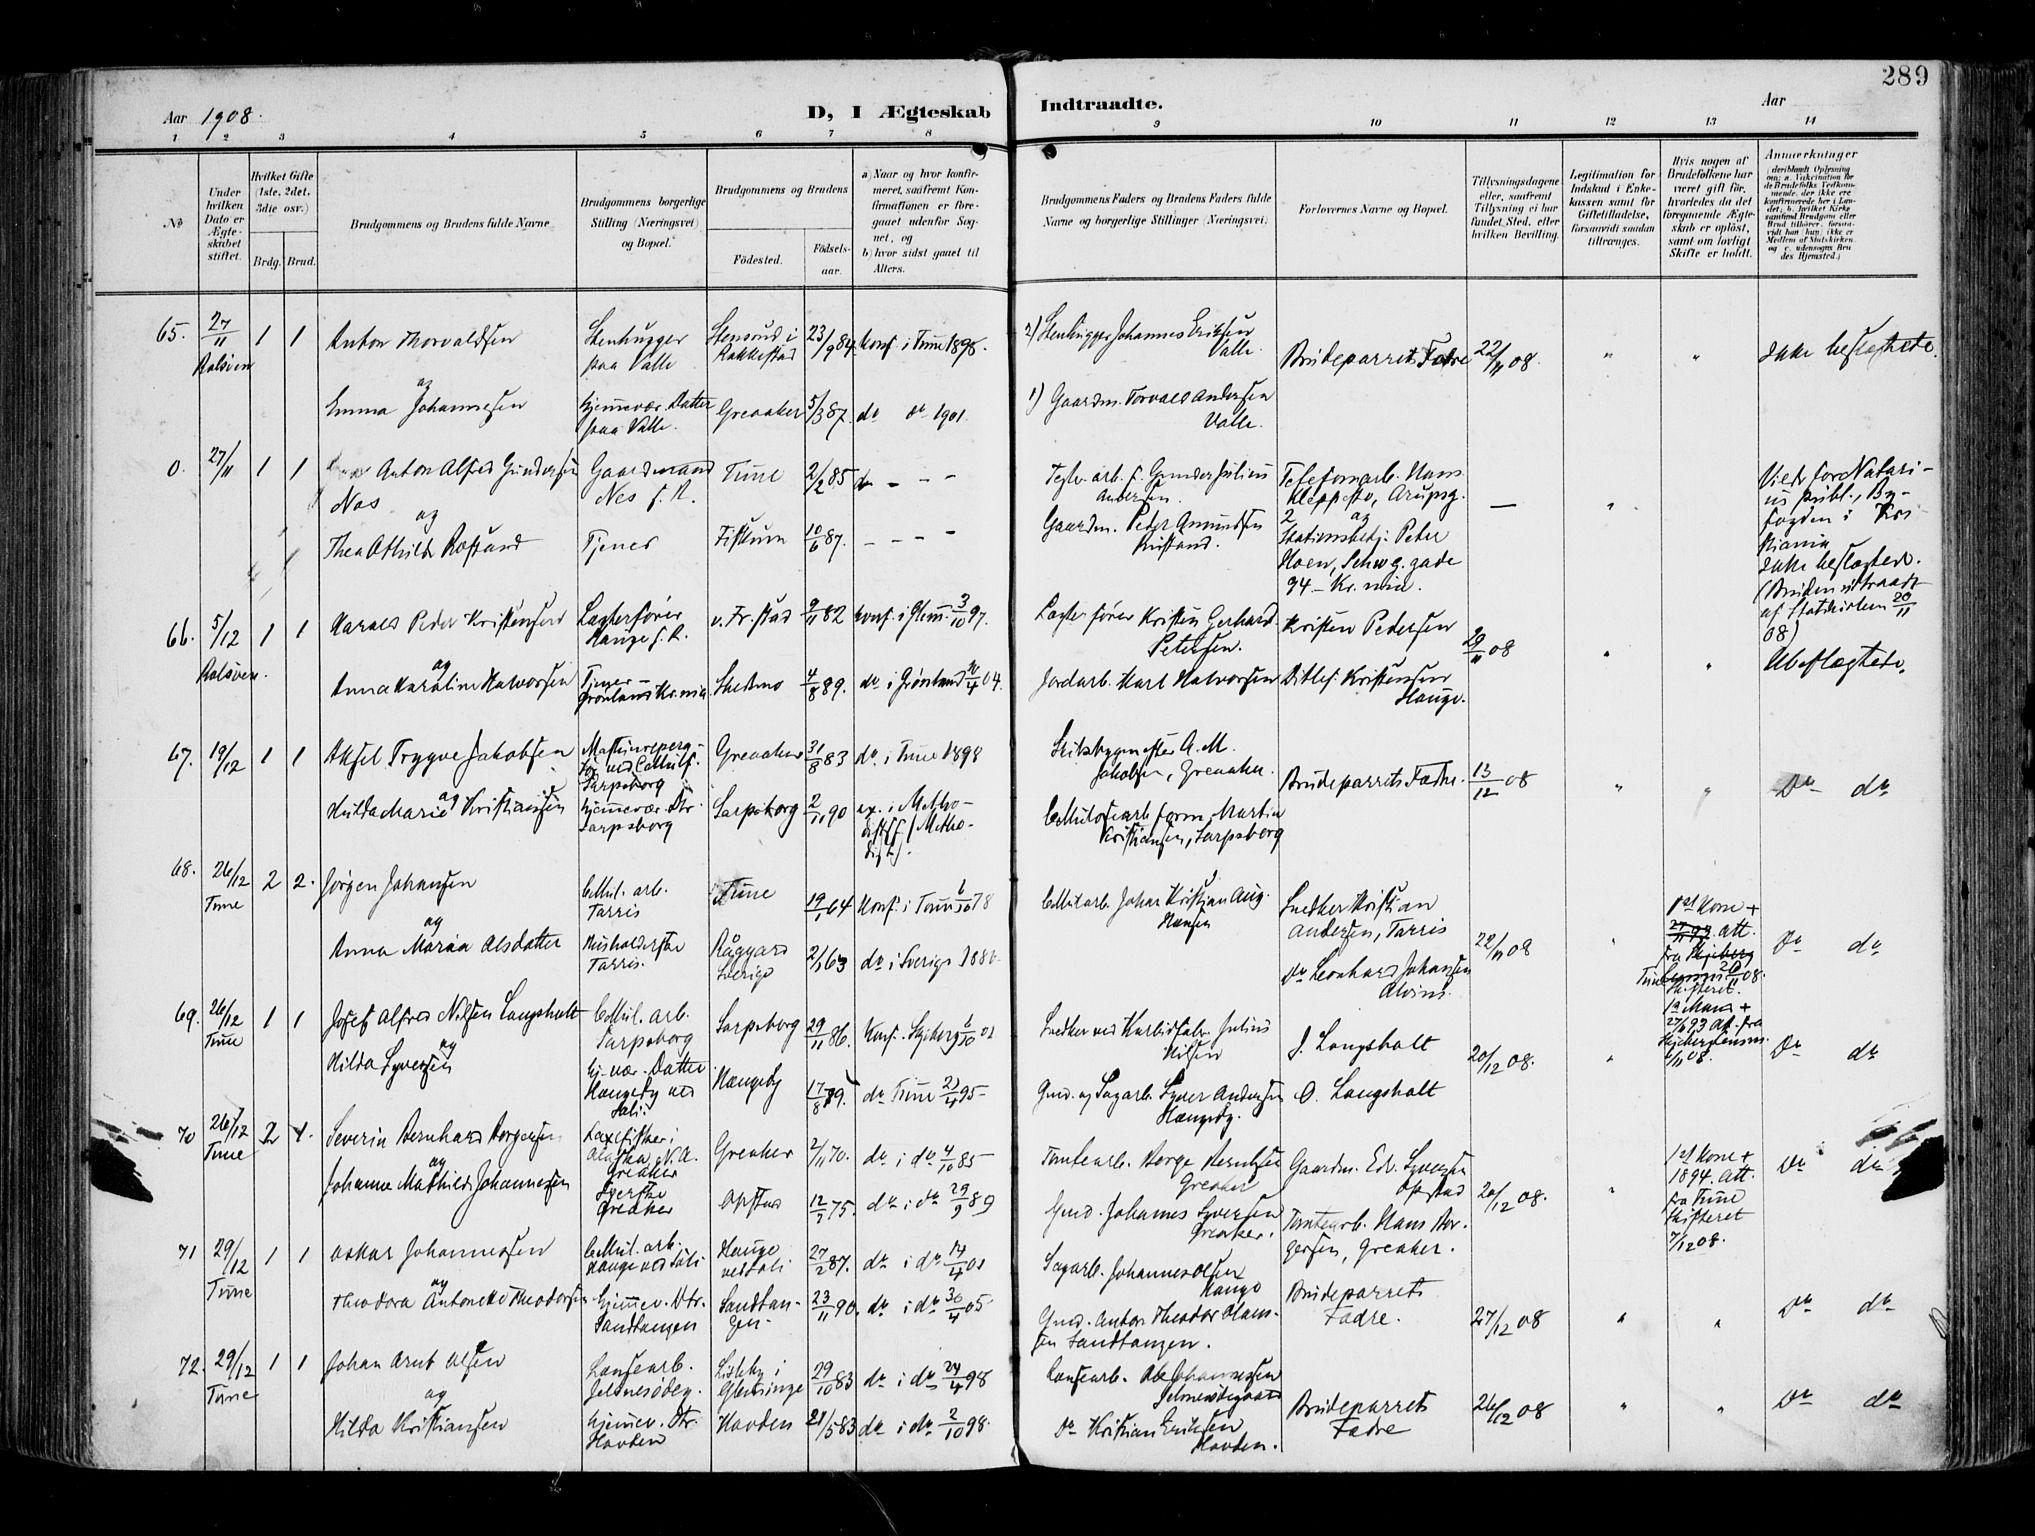 289
Aar 1908.
D, I Ægteskab Indtraadte. Aar
1 2 3 4 5 6 7 8 9 10 11 12 13 14
No
Under hvilken Dato er Ægteskabet stiftet.
Hvilket Gifte (1ste, 2det, 3die osv.)
Brdg. Brud.
Brudgommens og Brudens fulde Navne
Brudgommens borgerlige Stilling (Næringsvei) og Bopæl.
Brudgommens og Brudens
Fødested. Fødselsaar.
a) Naar og hvor konfirmeret, saafremt Konfirmationen er foregaaet udenfor Sognet, og
b) hvor sidst gaaet til Alters.
Brudgommens Faders og Brudens Faders fulde Navne og borgerlige Stillinger (Næringsvei).
Forlovernes Navne og Bopæl.
Tillysningsdagene eller, saafremt Tillysning ei har fundet Sted, efter hvilken Bevilling.
Legitimation for Indskud i Enkekassen samt for Giftetilladelse, forsaavidt saadan tiltrænges.
Hvis nogen af Brudefolkene har været gift før, hvorledes da det foregaaende Ægteskab er opløst, samt om lovligt Skifte er holdt.
Anmærkninger
65. 27/11 Rolsöen 1 1
Anton Thorvaldsen
og
Emma Johannesen
Stenhugger
paa Valle
Hjemmevær. Datter
paa Valle.
Stensrud i
Rakkestad
Greaaker
23/9 84.
5/3 87.
Konf. i Tune 1898.
do do 1901.
2) Stenhugger Johannes Eriksen
Valle.
1) Gaardm. Torvald Andersen
Valle.
Brudeparrets Fædre
22/11 08.
" "
Ikke beslægtede.
0. 27/11 1 1
Anton Alfred Gundersen
Nes
og
Thea Othilde Rostand
Gaardmand
Nes f. R.
Tjener
Tune
Fiskum
2/2 85
10/6 87.
do - - -
- - - -
Teglv. arb. f. Gunder Julius
Andersen.
Gaardm. Peder Amundsen
Telefonarb. Hans
Kleppesto, Arupsg.
2 og
Stationsbetj. Peter
Hoen, Schwg. gade
94 - Kr.nia.
—
"
Viede for Notari-
us publ., By-
fogden i Kri
stiania
Ikke beslægtede.
(Bruden udtraadt
af Statskirken 20/11
08)
66. 5/12 Rolsöen. 1 1
Harald Peder Kristensen
og
Anna Karoline Halvorsen
Lægterfører
Hauge f. R.
Tjener -
Grønland Kr.nia
v. Fr.stad
Skedsmo
9/11 82
4/8 89.
Konf. i Glem. 3/10 97.
do i Grønland 10/4 04.
Lægterfører Kristen Gerhard
Petersen.
Jordarb. Karl Halvorsen
Kristen Pedersen
Ditlef Kristensen
Hauge.
29/11 08
" "
Ubeslægtede.
67. 19/12 1 1
Aksel Trygve Jakobsen
og
Hilda Marie Kristiansen
Sarpsborg
Hjemmevær. Dtr.
Sarpsborg
Greaaker
Sarpsborg
31/8 83
2/11 90
do i Tune 1898
Skibsbygmester A. M.
Jakobsen, Greaaker.
Cellulosearb.form. Martin
Kristiansen, Sarpsborg
Brudeparrets Fædre.
13/12 08
" "
Do do
68. 26/12 Tune 2 2.
Jørgen Johansen
og
Anna Maria Olsdatter
Cellul. arb.
Tarris
Husholderske
Tarris.
Tune
Råggärd
Sverige
19/1 64
2/1 63
Konf. i Tune 6/10 78
do i Sverige 1880.
Cellul.arb. Johan Kristian Aug.
Hansen
Snedker Kristian
Andersen, Tarris
do Leonhard Johansen
Alvim.
22/11 08
"
1st Kone +
Att.
fra Skjeberg
20/11 08.
Skifteret.
1ste Mand +
27/6 93 Att. fra
6/11 08.
Do do
69. 26/12 Tune 1 1
Josef Alfred Nilsen Langsholt
og
Hilda Syversen
Cellul. arb.
Sarpsborg
Hj. vær. Datter
Haugeby ved
Sali.
Sarpsborg
Haugeby
29/11 86.
17/8 79.
Konf. Skjeberg 6/10 01
do Tune 21/4 95
Snedker ved Karbidfabr. Julius
Nilsen
Gmd. og Sagarb. Syver Andersen
Haugeby.
J. Langsholt
O. Langsholt
20/12 08.
"
Do do
70 26/12 Tune 2 1.
Severin Bernhard Borgersen
og
Johanne Mathilde Johannesen
Laxefisker i
Alaska N. A.
Greaker
Syerske
Greaker
Greaker
Opstad
2/11 70.
12/2 75.
do i do 4/10 85
do i do 29/9 89
Tomtearb. Borge Berntsen
Greaker
Gmd. Johannes Syversen
Greaker.
Gaardm. Edv. Syversen
Opstad
Tomtearb. Hans Bor-
gersen, Greaker.
20/12 08.
"
1st Kone +
1894. Att.
fra Tune
Skifteret
7/12 08.
Do do
71 29/12 Tune 1 1
Oskar Johannessen
og
Theodora Antonette Theodorsen
Cellul. arb.
Hauge ved Sali
Hjemmev. Dtr.
Sandtangen
Hauge
ved Sali
Sandtan-
gen-
27/2 87.
23/11 90.
do i do 14/4 01
do i do 30/4 05
Sagarb. Johannes Olsen
Hauge
Gmd. Anton Theodor Hans-
sen Sandtangen.
Brudeparrets
Fædre.
27/12 08
" "
Do do
72. 29/12 Tune 1 1
Johan Arnt Olsen
og
Hilda Kristiansen
Lønsearb.
Jelsnesødeg.
Hjemmev. Dtr.
Havden
Lisleby i
Glemminge
Havden
29/10 83
21/5 83
do i do 24/4 98
do i do 2/10 98.
Lænsearb. Ole Johannessen
do Kristian Eriksen
Havden.
Brudeparrets
Fædre
26/12 08
" "
Do do